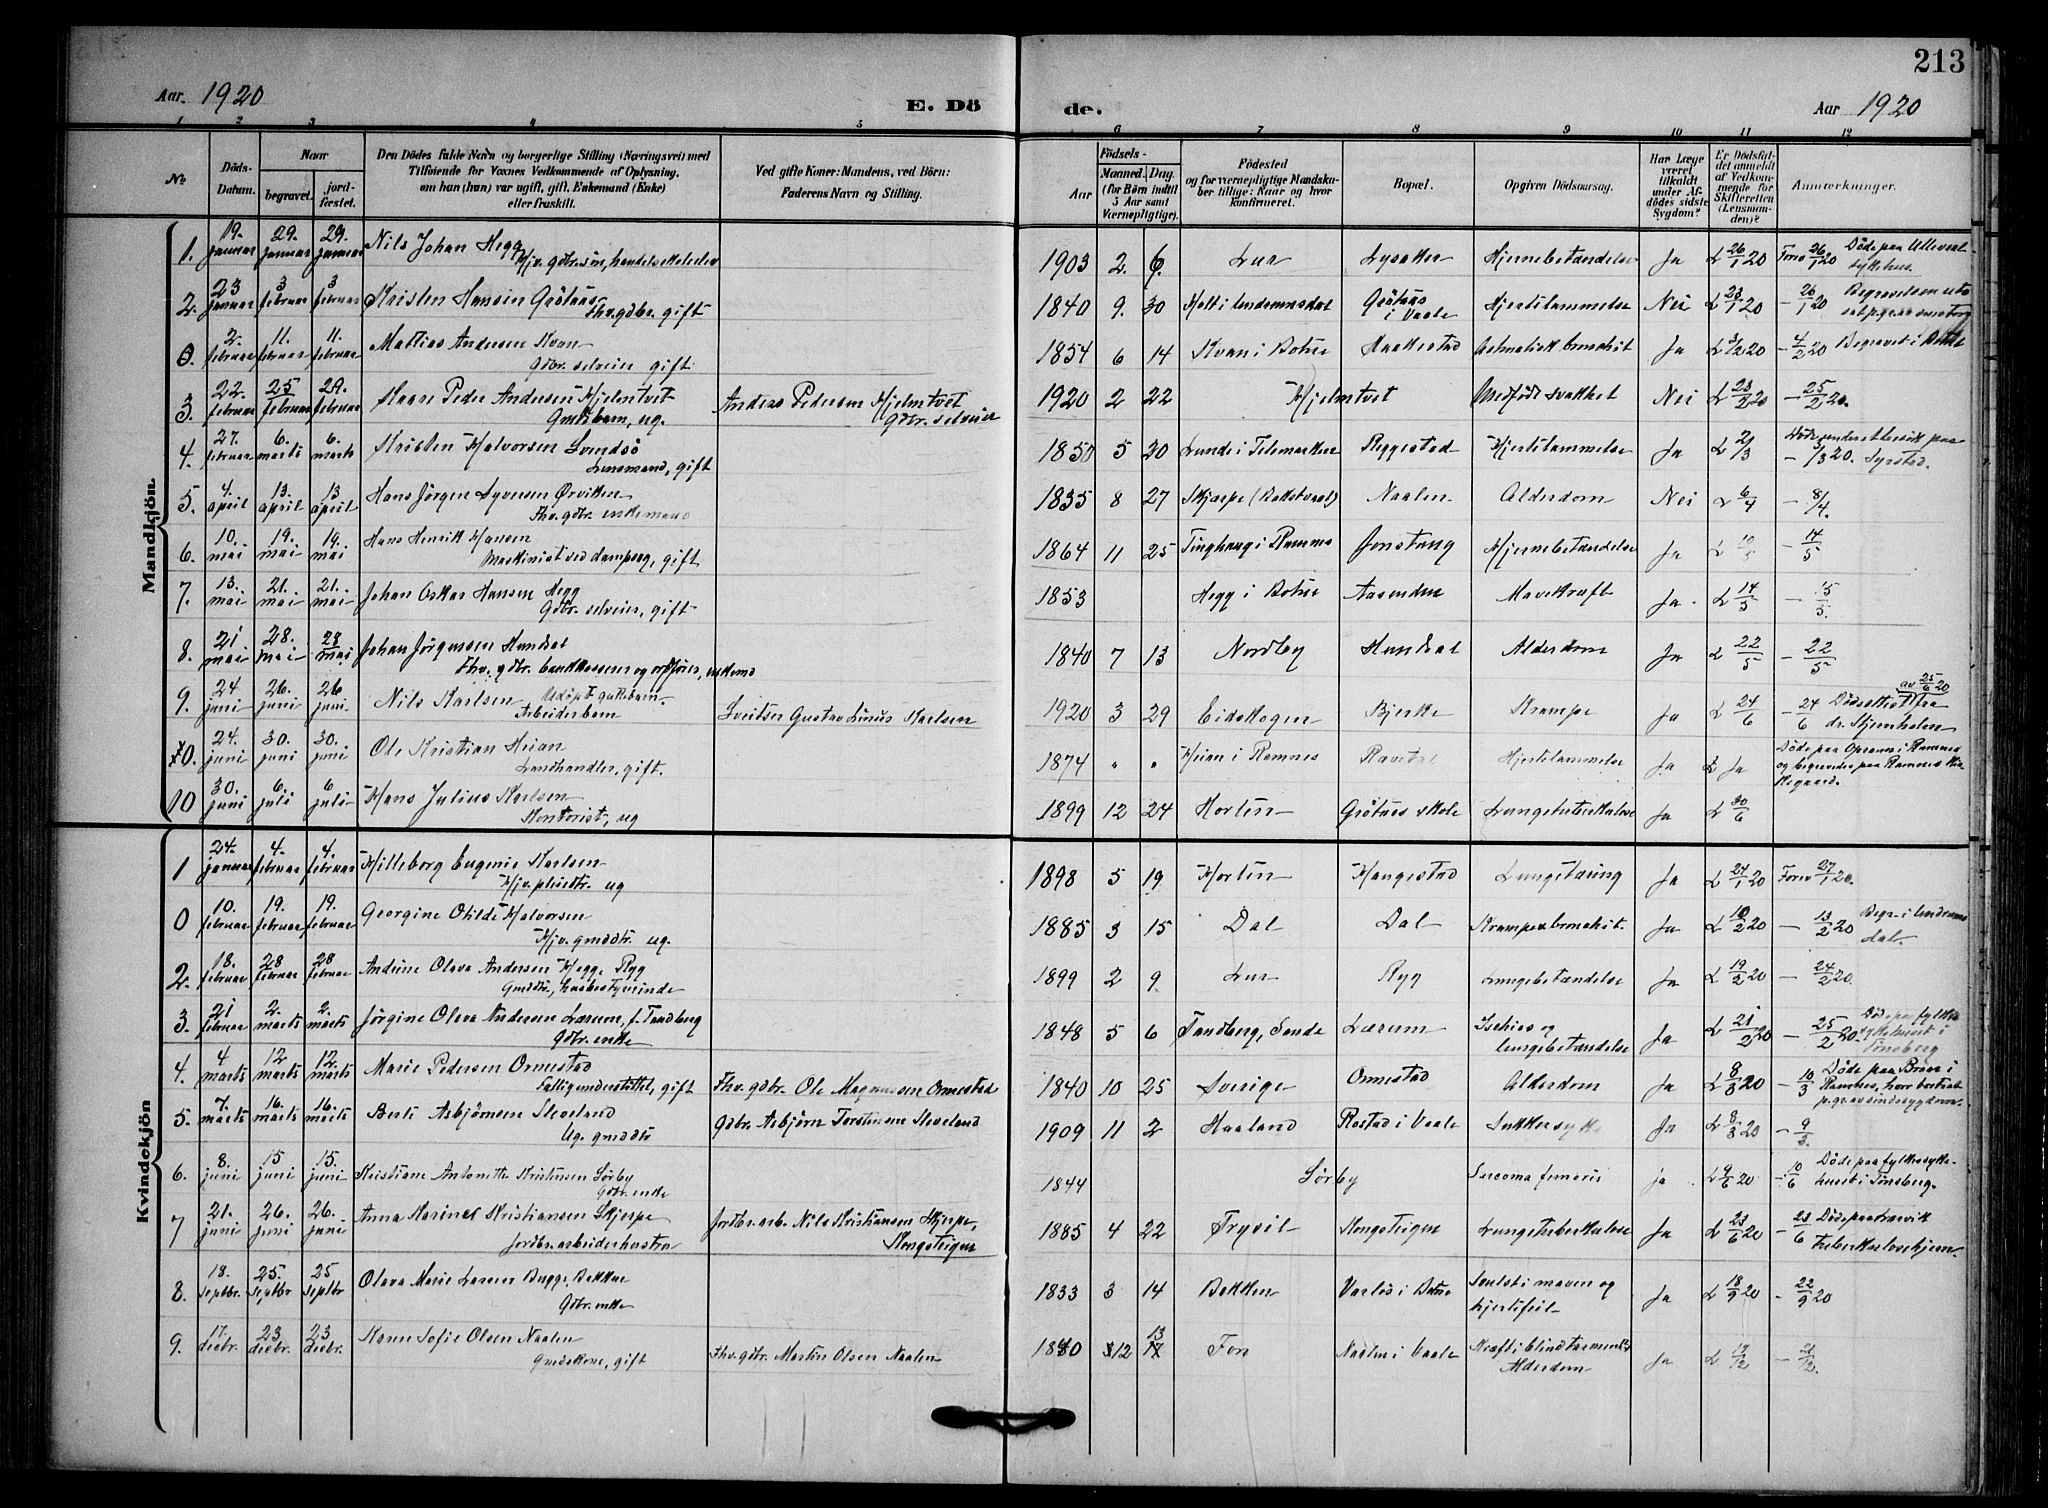 213
Aar. 1920
E. Dö
de.
Aar 1920
1 2 3 4 5 6 7 8 9 10 11 12
No
Döds-
Datum.
Naar
begravet.
jord-
fæstet.
Den Dödes fulde Navn og borgerlige Stilling (Næringsvei) med
Tilföiende for Voxnes Vedkommende af Oplysning,
om han (hun) var ugift, gift, Enkemand (Enke)
eller fraskilt.
Ved gifte Koner: Mandens, ved Börn:
Faderens Navn og Stilling.
Födsels-
Aar
Maaned. Dag.
(for Börn indtil
5 Aar samt
Værnepligtige).
Födested
og for værnepligtige Mandska-
ber tillige: Naar og hvor
konfirmeret.
Bopæl.
Opgiven Dödsaarsag.
Har Læge
været
tilkaldt
under Af-
dödes sidste
Sygdom?
Er Dödsfal-
det anmeldt
af Vedkom-
mende for
Skifteretten
(Lensman-
den)?
Anmærkninger.
Mandkjön.
1. 19. januar 29. januar 29. januar Nils Johan Hegg
Hjv. gdbr.sön, handelsskoleelev
1903 2. 6. Lur Lysaker Hjernebetændelse Ja L 26/1 20 Fons 26/1 20 Döde paa Ullevaal
sykehus.
2. 23 januar 3 februar 3 februar Kristen Hansen Grötaas
Fhv. gdbr. gift
1840 9. 30 Holt i Undrumsdal Grötaas
i Vaale Hjertelammelse Nei L 23/1 20 - 26/1 20 Begravelsen
0. 2. februar 11. februar 11. februar Mathias Andersen Kvan
Gdbr. selveier, gift
1854 6 14 Kvan i Botne Haakestad Astmatisk bronchit Ja L 3/2 20 - 4/2 20 Begravet i Botne
3. 22. februar 25 februar 29. februar Kaare Peder Andersen Hjelmtvet
Gmdsbarn, ug.
Anders Pedersen Hjelmtvet
Gdbr. selveier
1920 2 22 Hjelmtvet Medfödt svakhet Nei L 23/2 20 - 25/2 20.
4. 27. februar 6. marts 6. marts Kristen Halvorsen Svendsö
Lensmand, gift
1850 5 20 Lunde i Telemarken Reggestad Hjertelammelse Ja L 2/3 - 3/3 20.
5. 4. april 13. april 13 april Hans Jörgen Syversen Ørviken
Fhv. gdbr. enkemand
1835 8 27 Skjærpe Naalen Alderdom Nei L 6/4 - 8/4.
6. 10. mai 19. mai 19. mai Hans Henrik Hansen
Maskinist ved dampsag, gift
1864 11 25 Tinghaug i Ramnes Jonstang Hjernebetændelse Ja L - 14/5
7. 13. mai 21. mai 21. mai Johan Oskar Hansen Hegg
Gdbr. selveier, gift
1853 Hegg i Botne Aasenden Mavekræft Ja. L 14/5 - 15/5.
8. 21 mai 28. mai 28 mai Johan Jörgensen Hundsal
Fhv. gdbr. bankkasserer og ordförer, enkemd
1840 7 13 Nordby Hundsal Alderdom Ja L 22/5 - 22/5
9. 24 juni 26. juni 26 juni Nils Karlsen Udöpt guttebarn.
Arbeiderbarn
Sveitser Gustav Linus Karlsen
1920 3 29 Eidskogen Bjerke Krampe Ja L 24/6 - 24/6 Dödsattest fra
av 25/6 20
10. 24. juni 30. juni 30. juni Ole Kristian Heian
Landhandler, gift.
1874 " " Heian i Ramnes Hjertelammelse Ja L Ja Döde paa i Ramnes
og begravedes paa Ramnes kir-
kegaard.
10 30. juni 6. juli 6 juli Hans Julius Karlsen
Kontorist, ug
1899 12 24 Horten Grötaas skole Lungetuberkulose Ja L 30/6
Kvindekjön
1 24. januar 4. februar 4. februar Hilleborg Eugenie Karlsen
Hjv. pleiedtr. ug
1898 5 19 Horten Hangestad Lungetæring Ja L 24/1 20 Fons 27/1 20.
0 10. februar 19. februar 19. februar Georgine Otilde Halvorsen
Hjv. gmddtr. ug.
1885 3 15 Dal Dal Krampe bronchit. Ja L 10/2 20 - 13/2 20 Begr. i Undrums-
dal.
2. 18. februar 28 februar 28 februar Andrine Olava Andersen Hegg, Ryg
Gmddtr., husbestyrerinde
1899 2 9 Lur Ryg Lungebetændelse Ja L 19/2 20 - 24/2 20.
3. 21 februar 2. marts 2. marts Jörgine Olava Andersen Lærum, f. Tandberg
Gdbr. enke
1848 5 6 Tandberg, Sande Lærum Ischias og
lungebetændelse Ja L 21/2 20 - 25/2 20. Döde paa fylkes-
sykehuset i
Tönsberg
4. 4 marts 12 marts 12. marts Marie Pedersen Ormestad
Fattigunderstöttet, gift
Fhv. gdbr. Ole Magnussen Ormestad
1840 10 25 Sverige Ormestad Alderdom Ja L 8/3 20 - 10/3 Döde paa i
Ramnes, hvor bortsat
p.gr. av sindssygdom.
5. 7. marts 16. marts 16. marts Berte Asbjörnsen Sleveland
Ug. gmddtr
Gdbr. Asbjörn Torstensen Sleveland
1909 11 2 Haaland Rostad i Vaale Sukkersyke Ja L 8/3 20 - 9/3.
6. 8. juni 15 juni 15. juni Kristiane Antonette Kristensen Sörby
Gdbr. enke
1844 Sörby Sarcoma femoris Ja L 9/6 20 - 10/6 Döde paa fylkessyke-
huset i Tönsberg.
7 21. juni 26. juni 26. juni Anna Marine Kristiansen Skjerpe
Jordbr.arbeiderhustru
Jordbr.arb. Nils Kristiansen Skjerpe,
Kongsteigen
1885 4 22 Trysil Kongsteigen Lungetuberkulose Ja L 23/6 20 - 23/6 Döde paa Larvik
tuberkulosehjem.
8. 18. septbr. 25. septbr 25 septbr Olava Marie Larsen Bugge, Bekken
Gdbr. enke
1833 3 14 Bekken i Botne Svulst i maven og
hjertefeil Ja L 18/9 20 - 22/9 20
9. 17. decbr. 23 decbr. 23 decbr. Karen Sofie Olsen Naalen
Gmdskone, gift
Fhv. gdbr. Martin Olsen Naalen
1840 12 13 Fon Naalen i Vaale Kræft i blindtarmen
Alderdom Ja L 17/12 - 21/12.